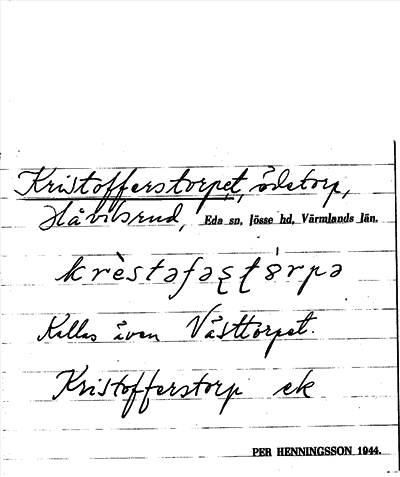 Kristofferstorpet, ödetorp,
Håvilsrud, Eda sn, Jösse hd, Värmlands län.
krèstəfəʂʈórpə
Kallas även Västtorpet.
Kristofferstorp ek
PER HENNINGSSON 1944.